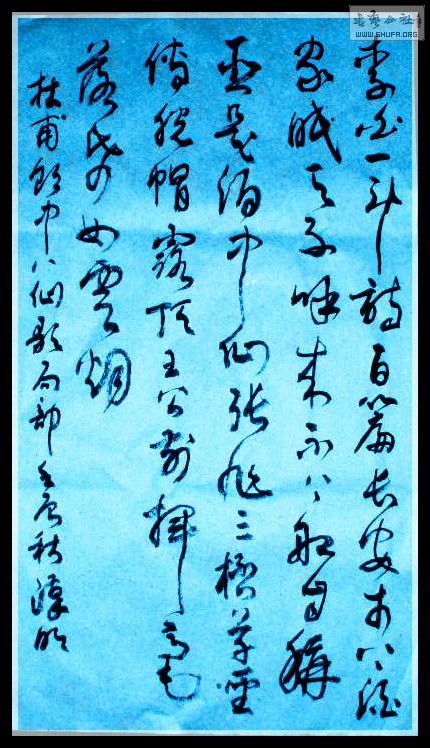 李白一斗詩百篇長安市上酒
家眠天子呼來不上船自稱
臣是酒中仙張旭三杯草聖
傳脱帽露頂王公前揮毫
落紙如雲烟
杜甫飲中八仙歌局部壬辰秋
書藝公社
WWW.SHUFA.ORG